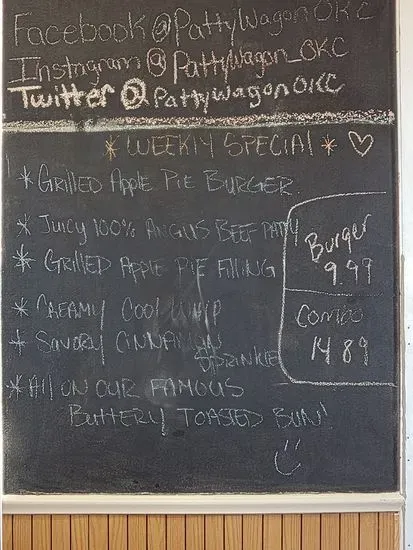 Facebook @PattyWagonOKC
Instagram @PattyWagon_OKC
Twitter @PattyWagonOKC
* WEEKLY SPECIAL * ♡
* GRILLED APPLE PIE BURGER
* JUICY 100% ANGUS BEEF PATTY
* GRILLED APPLE PIE FILLING
* CREAMY COOL WHIP
* SAVORY CINNAMON
SPRINKLE
* All ON OUR FAMOUS
BUTTERY TOASTED BUN!
Burger
9.99
Combo
14.89